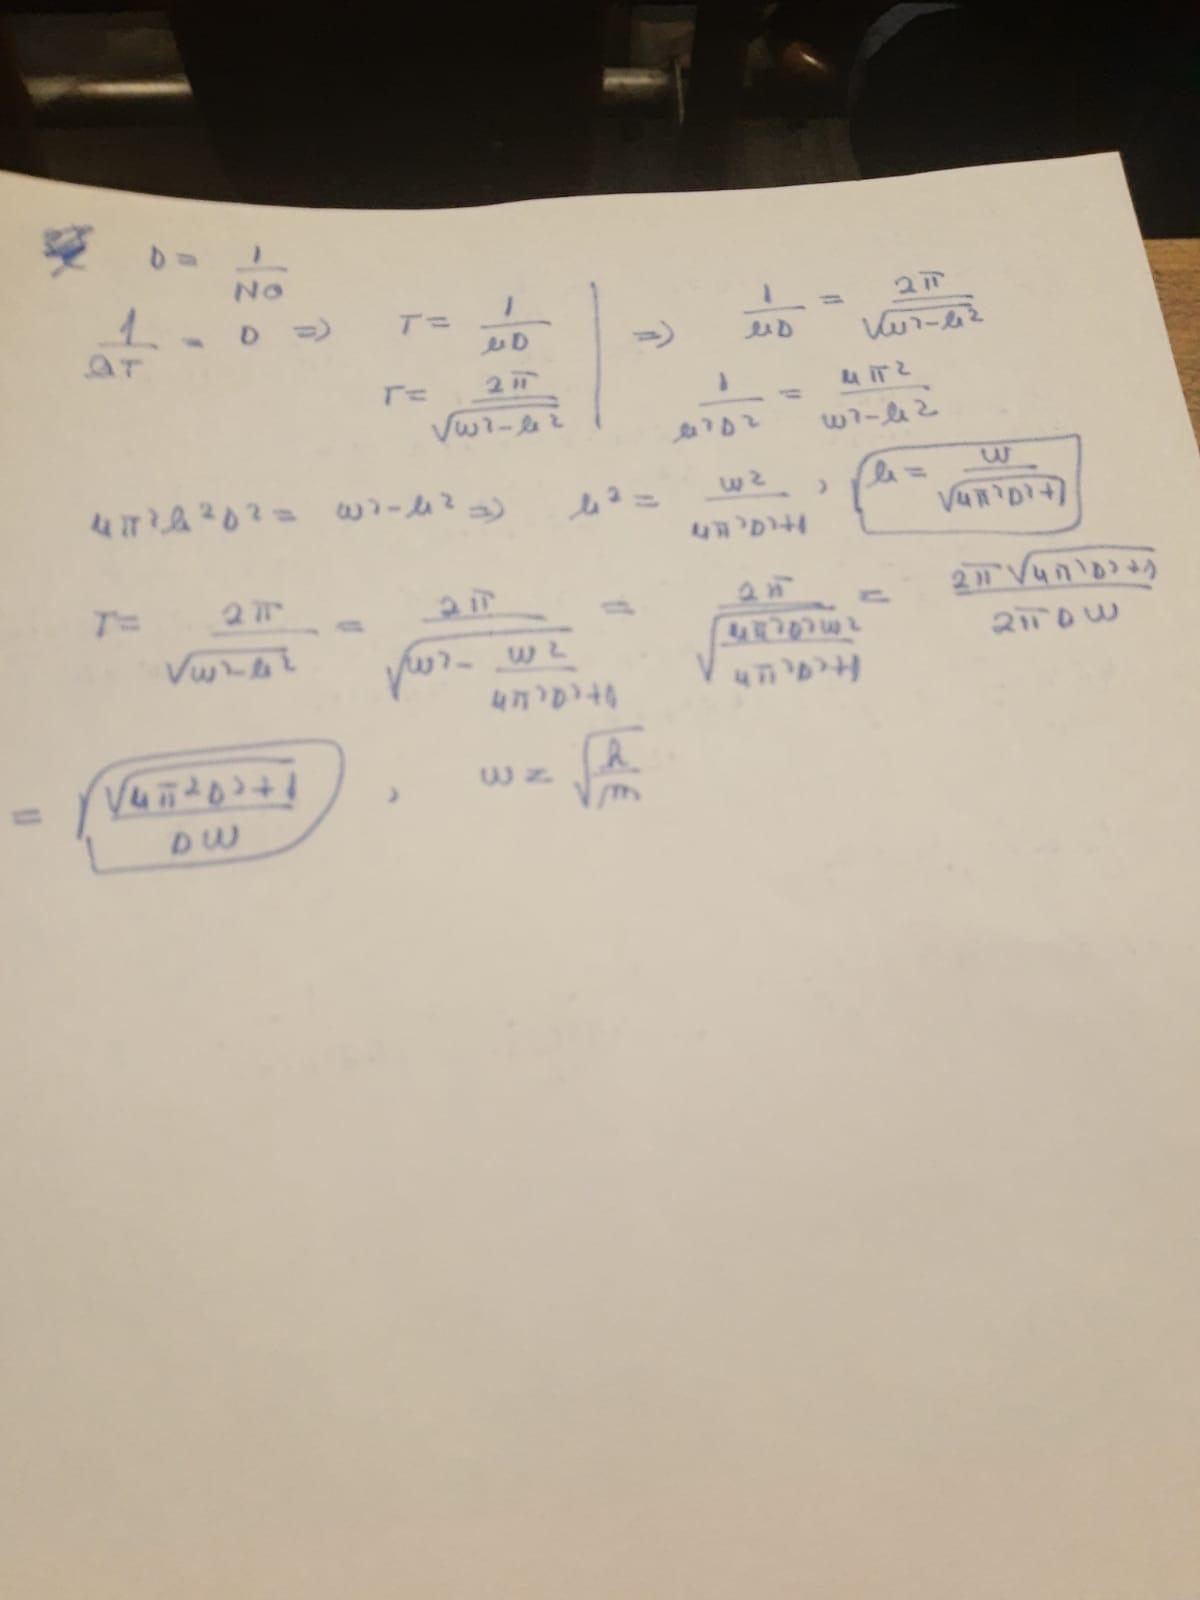 D = 1/N0
1/aT = D => T = 1/aD | => 1/aD = 2π/√w²-a²
T = 2π/√w²-a² | 1/a²D² = 4π²/w²-a²
4π²a²D² = w²-a² => a² = w²/4π²D²+1 , a = w/√4π²D²+1
T = 2π/√w²-a² = 2π/√w²- w²/4π²D²+1 = 2π/√4π²D²w²/4π²D²+1 = 2π√4π²D²+1/2πDw
= √4π²D²+1/Dw , w = √k/m